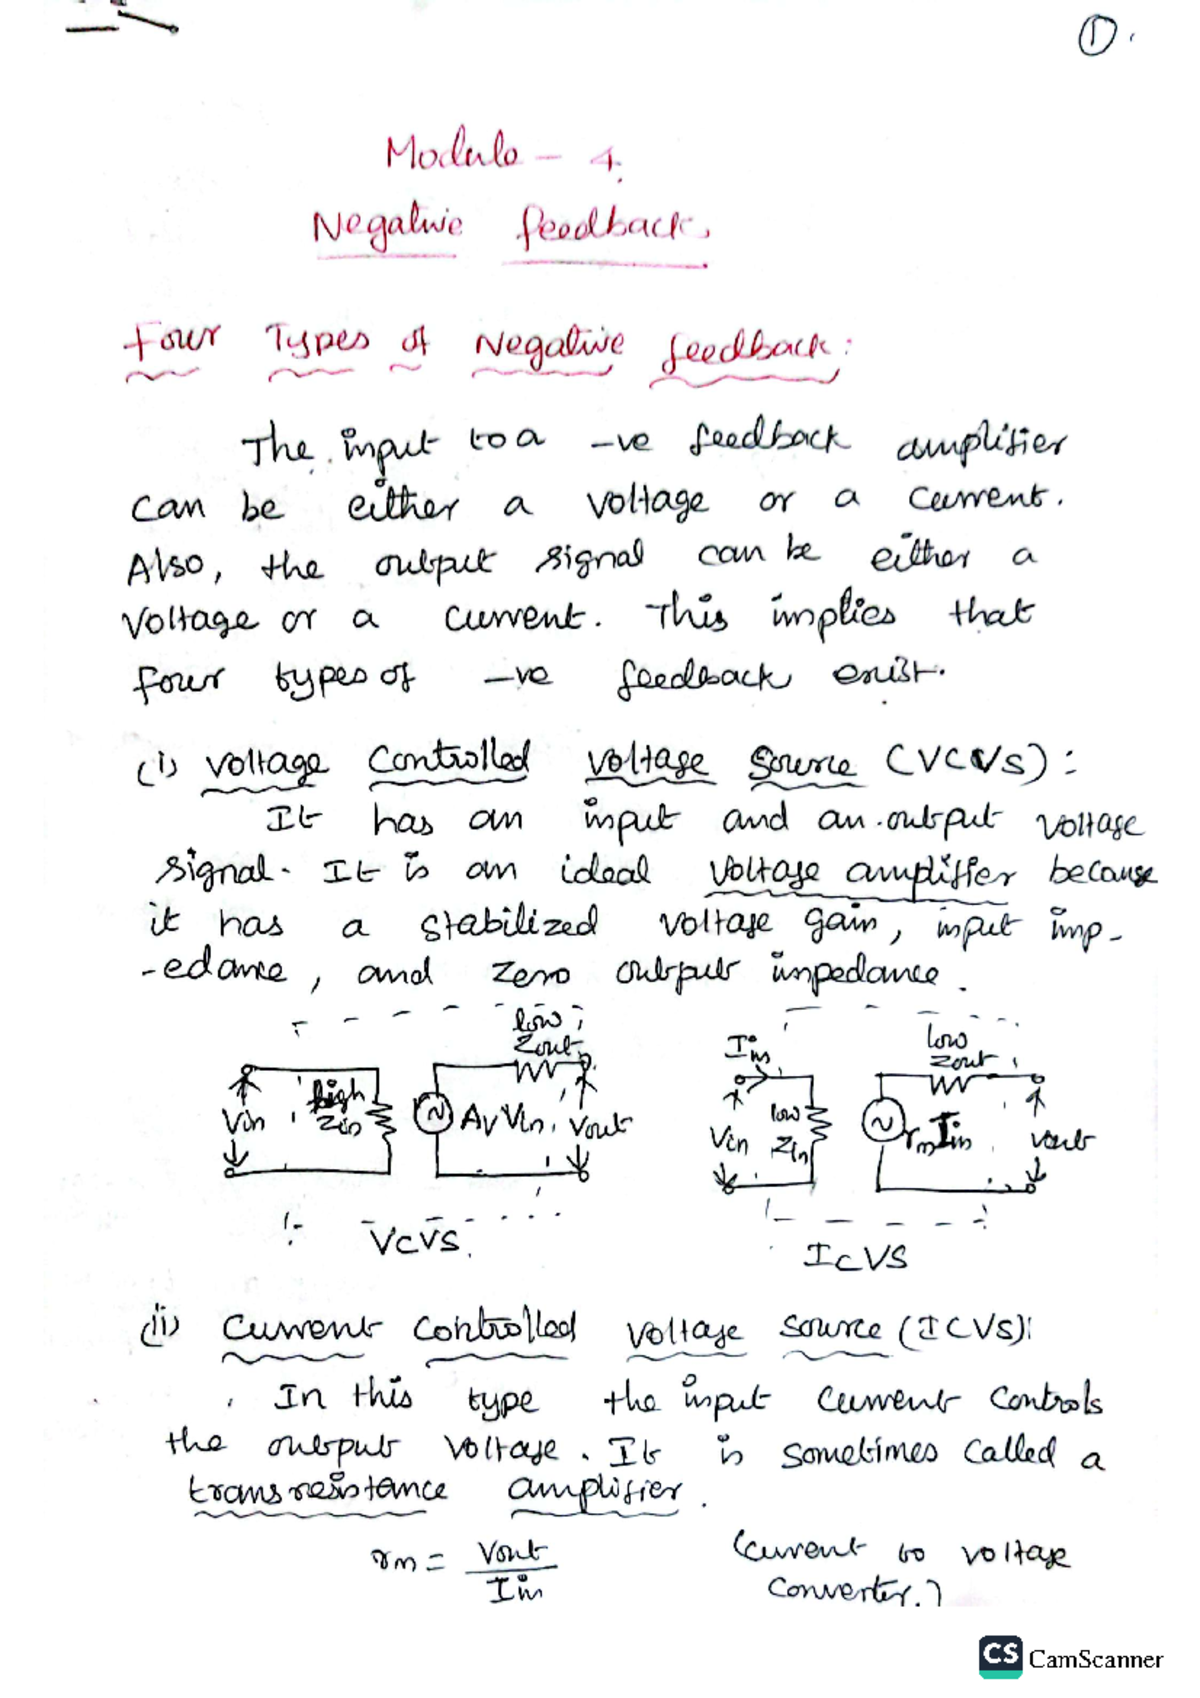 1.
Module - 4.
Negative feedback.
Four Types of Negative feedback:
The input to a -ve feedback amplifier
can be either a voltage or a current.
Also, the output signal can be either a
voltage or a current. This implies that
four types of -ve feedback exist.
(i) Voltage Controlled Voltage Source (VCVS):
It has an input and an output voltage
signal. It is an ideal voltage amplifier because
it has a stabilized voltage gain, input imp-
-edance, and zero output impedance.
low Zout
high Zin
Vin
Av Vin
Vout
VCVS.
Iin
low Zout
Vin
low Zin
rm Iin
Vout
ICVS
(ii) Current Controlled Voltage Source (ICVS):
In this type the input current controls
the output voltage. It is sometimes called a
transresistance amplifier.
rm = Vout / Iin
(current to voltage
converter.)
CS CamScanner